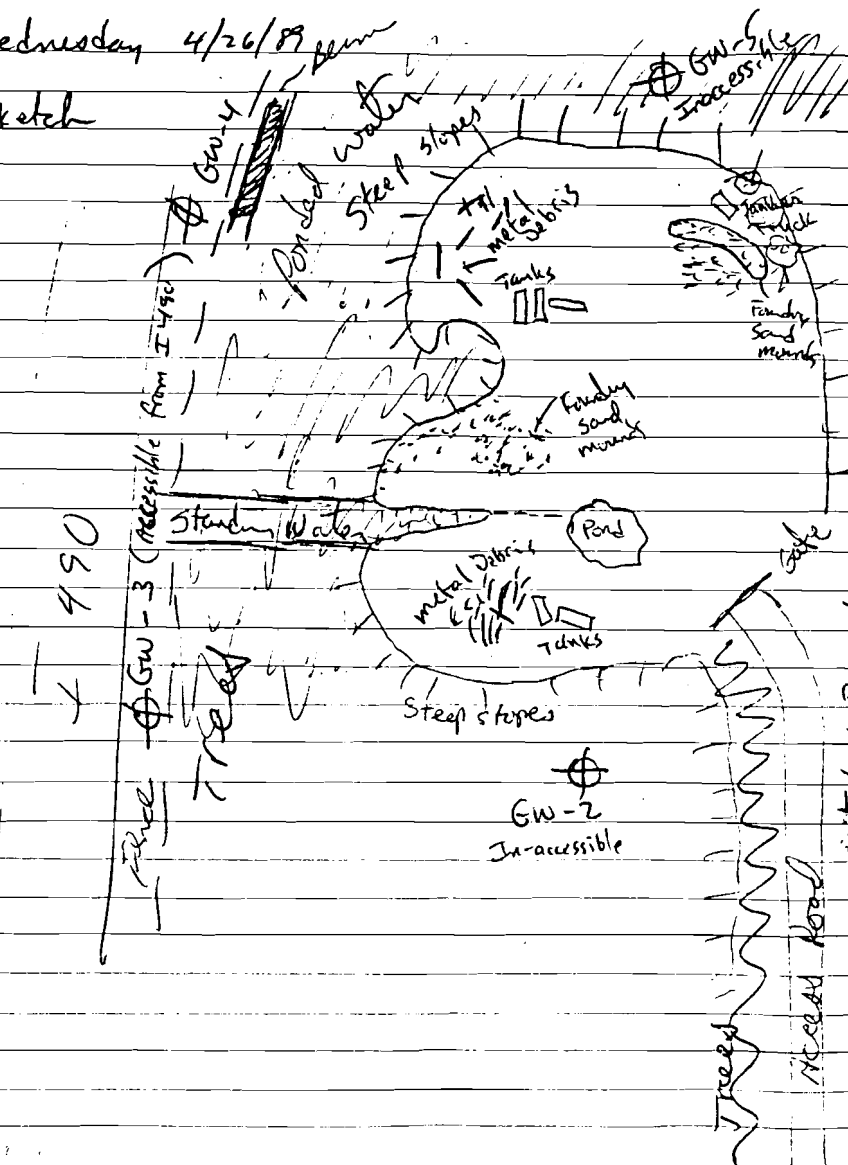 ednesday 4/26/89
ketch
Berm
GW-4
Ponded Water
Steep slopes
GW-5
Inaccessible
metal Debris
Tanks
Tanker
Truck
Foundry
Sand
mounds
Foundry
sand
mounds
I 490
Fence
GW-3 (Accessible from I 490)
Standing Water
Pond
Gate
metal Debris
Tanks
Trees
Steep slopes
GW-2
In-accessible
Trees
Access Road